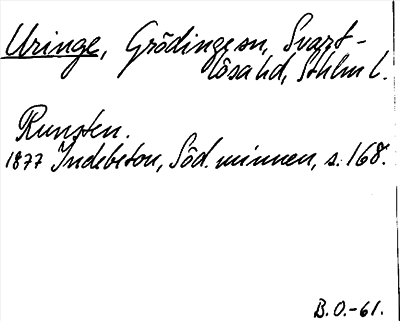 Uringe, Grödinge sn, Svart-
lösa hd, Sthlm l.
Runsten.
1877 Indebetou, Söd. minnen, s. 168.
B.O.-61.